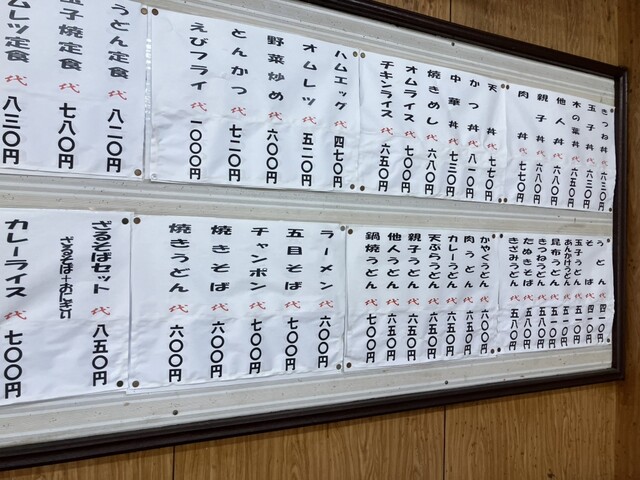 きつね丼 代 六三〇円
玉子丼 代 六三〇円
木の葉丼 代 六五〇円
他人丼 代 六八〇円
親子丼 代 六八〇円
肉丼 代 七七〇円
天丼 代 七七〇円
かつ丼 代 八一〇円
中華丼 代 七三〇円
焼きめし 代 六八〇円
オムライス 代 七〇〇円
チキンライス 代 六五〇円
ハムエッグ 代 四七〇円
オムレツ 代 五二〇円
野菜炒め 代 六〇〇円
とんかつ 代 七二〇円
えびフライ 代 一〇〇〇円
うどん定食 代 八二〇円
玉子焼定食 代 七八〇円
ムレツ定食 代 八三〇円
うどん 代 四一〇円
そば 代 四一〇円
玉子うどん 代 五一〇円
あんかけうどん 代 五一〇円
昆布うどん 代 五一〇円
きつねうどん 代 五一〇円
たぬきそば 代 五一〇円
きざみうどん 代 五一〇円
かやくうどん 代 六〇〇円
肉うどん 代 六五〇円
カレーうどん 代 六五〇円
天ぷらうどん 代 六五〇円
親子うどん 代 六五〇円
他人うどん 代 六五〇円
鍋焼うどん 代 七〇〇円
ラーメン 代 六〇〇円
五目そば 代 七〇〇円
チャンポン 代 七〇〇円
焼きそば 代 六〇〇円
焼きうどん 代 六〇〇円
ざるそばセット 代 八五〇円
ざるそば+おにぎり
カレーライス 代 七〇〇円